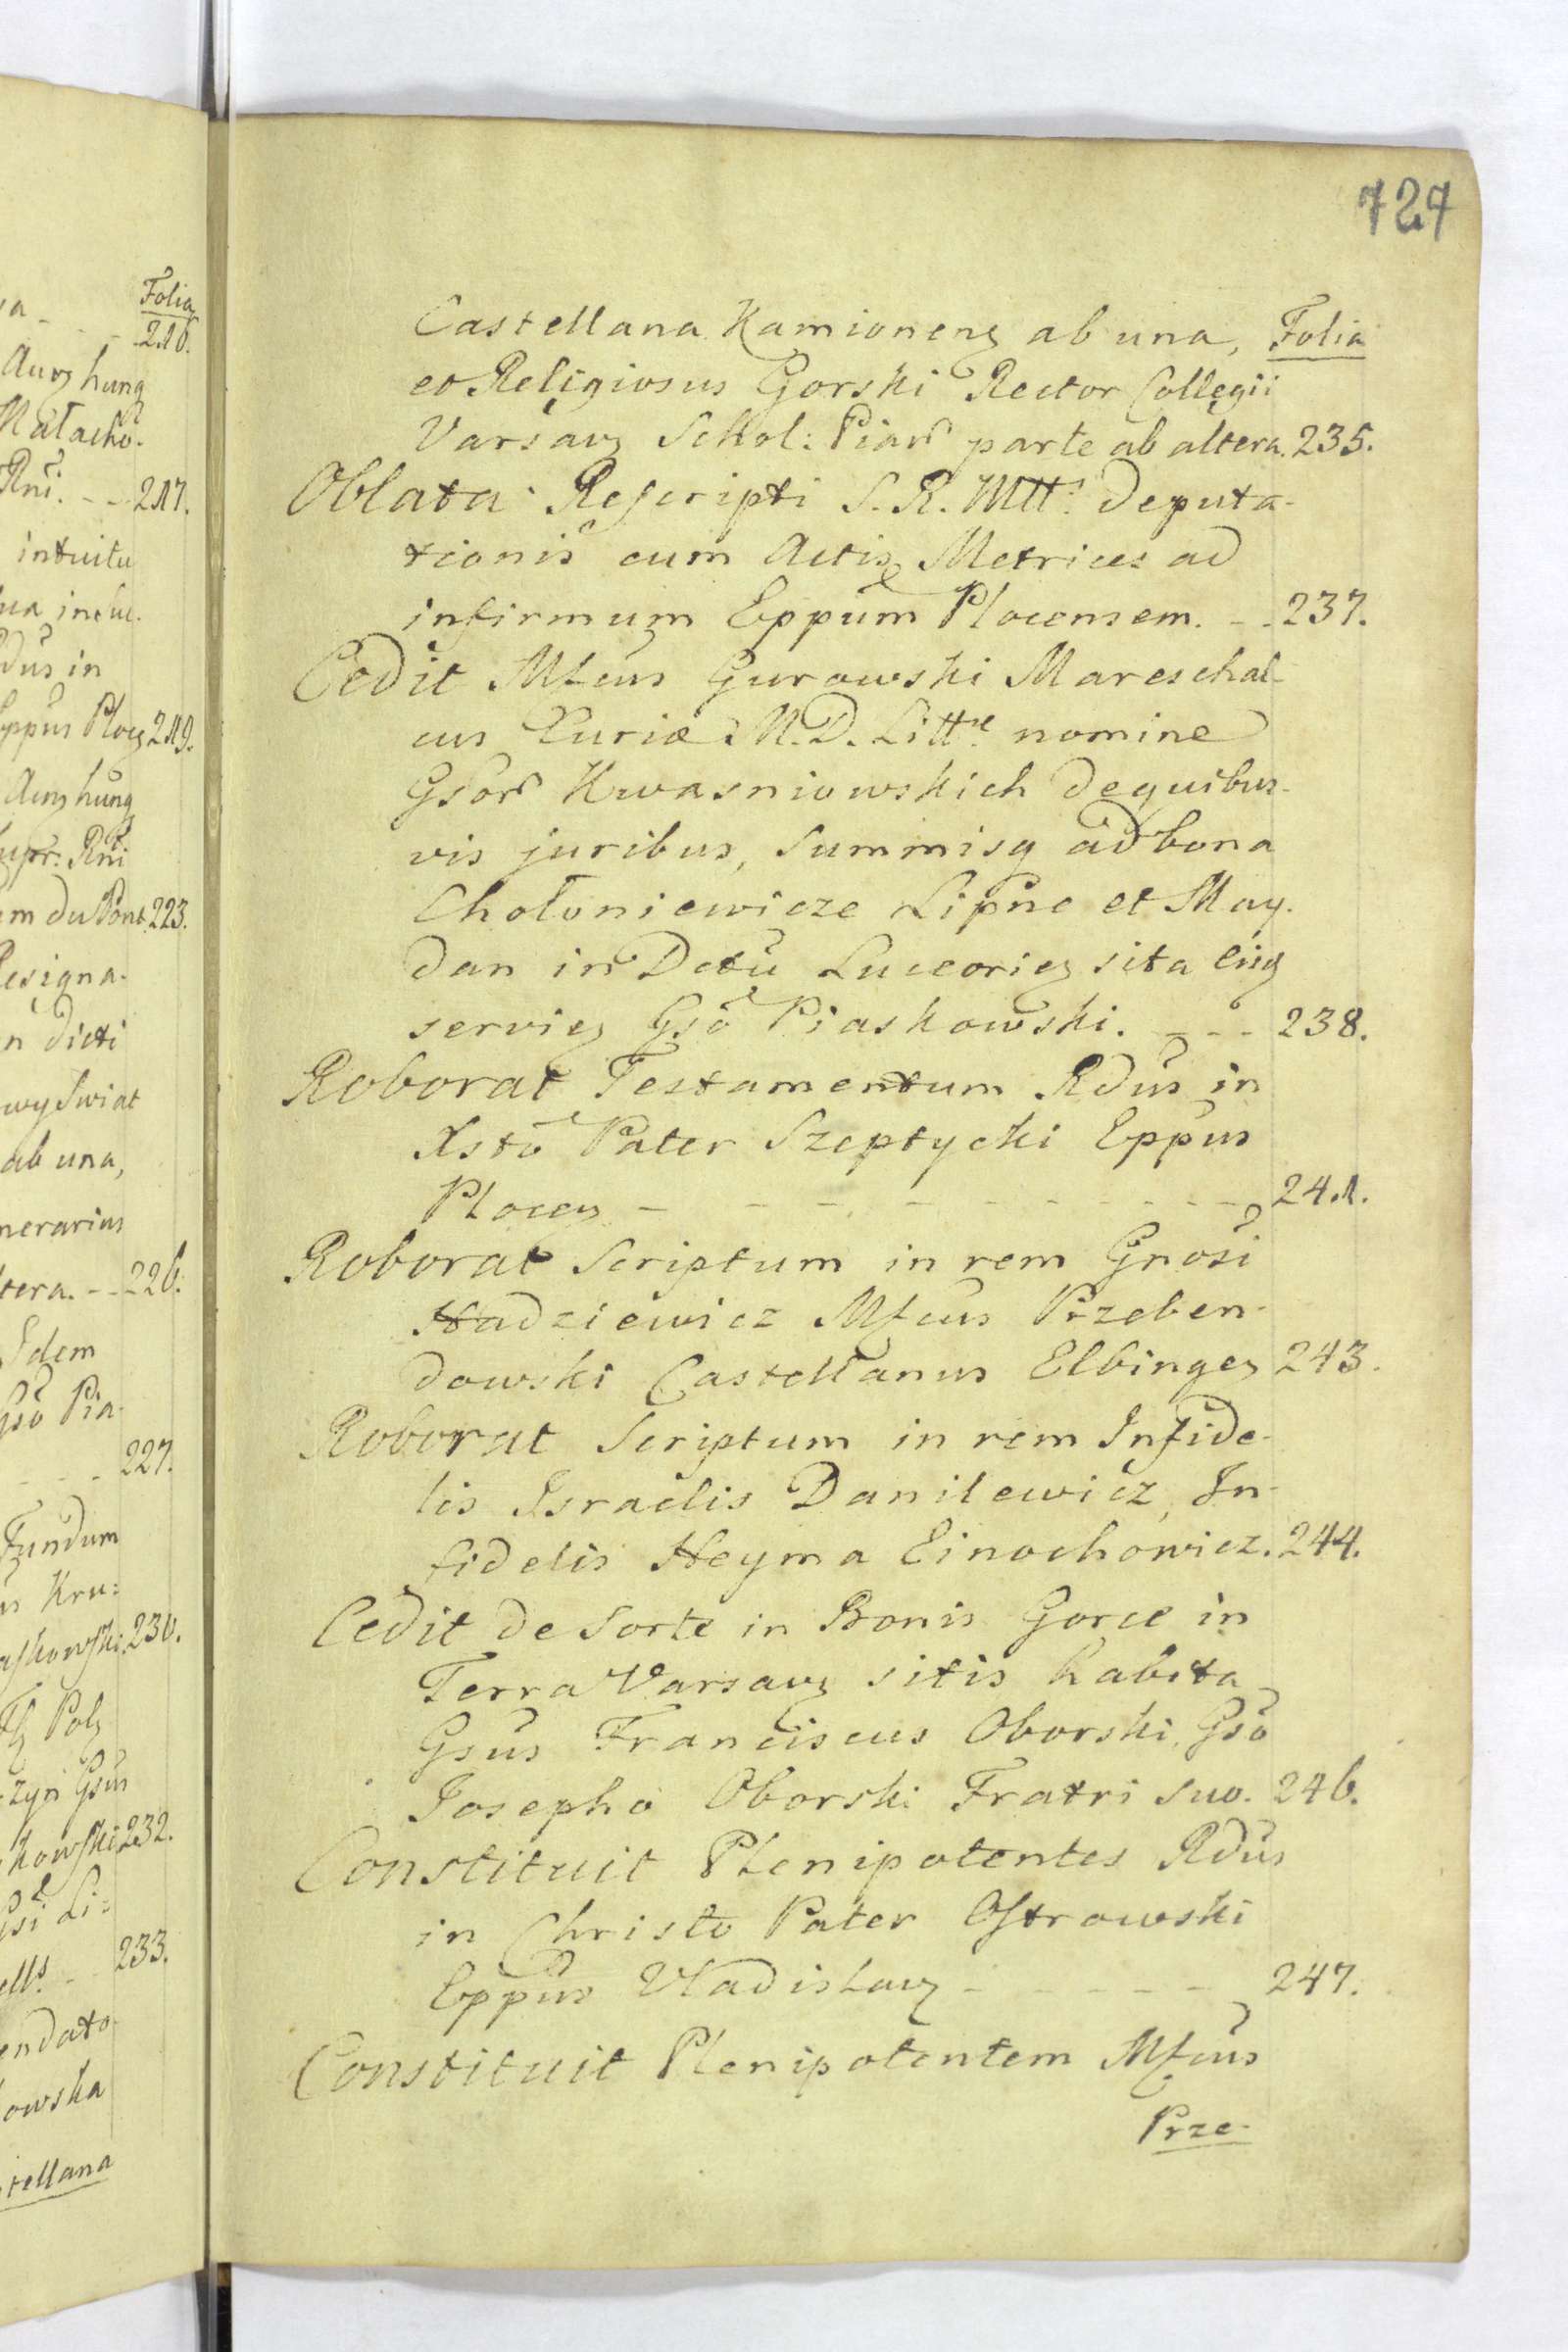 727
Castellana Kamionen̄ ab una, Folia
et Religiosus Gorski Rector Collegii
Varsav̄ Schol: Piar̄ parte ab altera. 235.
Oblata Rescripti S. R. Mtt: Deputa-
tionis cum Actis Metrices ad
infirmum Eppum Plocensem. - - 237.
Cedit Mfcus Gurowski Mareschal-
cus Curiæ M. D. Litt: nomine
Gsor̄ Kwasniowskich de quibus-
vis juribus, summisq ad bona
Chołoniewicze Lipne et May-
dan in Dctu Luceorien̄ sita
servien̄ Gso Piaskowski. - - - 238.
Roborat Testamentum Rdus in
Xsto Pater Szeptycki Eppus
Plocen̄ - - - - - - - - - 241.
Roborat Scriptum in rem Gnosi
Hadziewicz Mfcus Przeben-
dowski Castellanus Elbingen̄ 243.
Roborat Scriptum in rem Infide-
lis Israelis Danilewicz, In-
fidelis Heyma Einochowicz. 244.
Cedit de Sorte in Bonis Gorce in
Terra Varsav̄ sitis habita
Gsus Franciscus Oborski Gso
Josepho Oborski Fratri suo. 246.
Constituit Plenipotentes Rdus
in Christo Pater Ostrowski
Eppus Vladislav̄ - - - - - 247.
Constituit Plenipotentem Mfcus
Prze-
Folia
216.
hung
Małacho-
Rni. - - 217.
intuitu
Rdus in
Eppus Ploc̄ 219.
hung
Rni
du Pont. 223.
Resigna-
n dicti
wy Swiat
ab una,
nerarius
tera. - - 226.
Edem
Gso Pia-
- - - 227.
Fundum
Kru:
askowski. 230.
Pol̄
zyn Gsus
kowski 232.
Gsi Li:
233.
endato-
owska
tellana